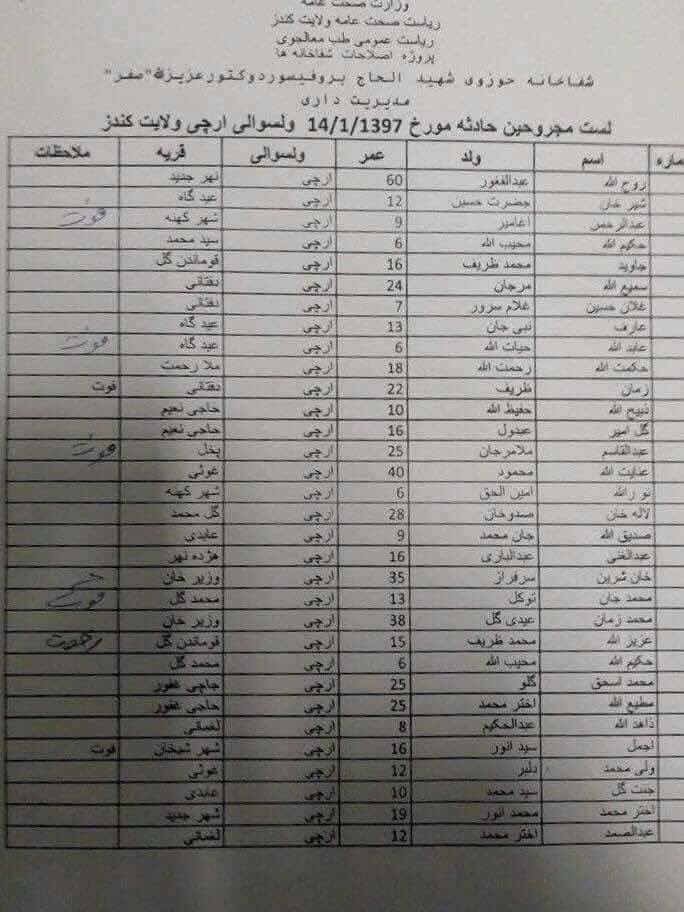 وزارت صحت عامه
ریاست صحت عامه ولایت کندز
ریاست عمومی طب معالجوی
پروژه اصلاحات شفاخانه ها
شفاخانه حوزوی شهید الحاج پروفیسوردوکتورعزیزالله"صفر"
مدیریت داری
لست مجروحین حادثه مورخ 14/1/1397 ولسوالی ارچی ولایت کندز
ماره اسم ولد عمر ولسوالی قریه ملاحظات
روح الله عبدالغفور 60 ارچی نهر جدید
شیر خان حضرت حسین 12 ارچی عید گاه
عبدالرحمن اغامیر 9 ارچی شهر کهنه فوت
حکیم الله محیب الله 6 ارچی سید محمد
جاوید محمد ظریف 16 ارچی قوماندن گل
سمیع الله مرجان 24 ارچی دفتانی
غلان حسین غلام سرور 7 ارچی دفتانی
عارف نبی جان 13 ارچی عید گاه
عابد الله حیات الله 6 ارچی عید گاه فوت
حکمت الله رحمت الله 18 ارچی ملا رحمت
زمان ظریف 22 ارچی دفتانی فوت
ذبیح الله حفیظ الله 10 ارچی حاجی نعیم
گل امیر عبدول 16 ارچی حاجی نعیم
عبدالقاسم ملامرجان 25 ارچی پخل فوت
عنایت الله محمود 40 ارچی غوثی
نو رالله امین الحق 6 ارچی شهر کهنه
لاله خان صدوخان 28 ارچی گل محمد
صدیق الله جان محمد 9 ارچی عابدی
عبدالغنی عبدالباری 16 ارچی هژده نهر
خان شرین سرفراز 35 ارچی وزیر خان
محمد جان توکل 13 ارچی محمد گل فوت
محمد زمان عیدی گل 38 ارچی وزیر خان
عزیز الله محمد ظریف 15 ارچی قوماندن گل
حکیم الله محیب الله 6 ارچی محمد گل
محمد اسحق گلو 25 ارچی حاجی غفور
مطیع الله اختر محمد 25 ارچی حاجی غفور
ذاهد الله عبدالحکیم 8 ارچی لغمانی
اجمل سید انور 16 ارچی شهر شیخان فوت
ولی محمد دلبر 12 ارچی غوثی
جنت گل سید محمد 10 ارچی عابدی
اختر محمد محمد انور 19 ارچی شهر جدید
عبدالصمد اختر محمد 12 ارچی لغمانی